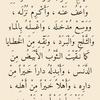 وَاعْفُ عَنْهُ ، وَأَكْرِمْ نُزُلَهُ ،
وَوَسِّعْ مُدْخَلَهُ ، وَاغْسِلْهُ بِالْمَاءِ
وَالثَّلْجِ وَالْبَرَدِ ، وَنَقِّهِ مِنَ الْخَطَايَا
كَمَا نَقَّيْتَ الثَّوْبَ الْأَبْيَضَ مِنَ
الدَّنَسِ ، وَأَبْدِلْهُ دَارًا خَيْرًا مِنْ
دَارِهِ ، وَأَهْلًا خَيْرًا مِنْ أَهْلِهِ ،